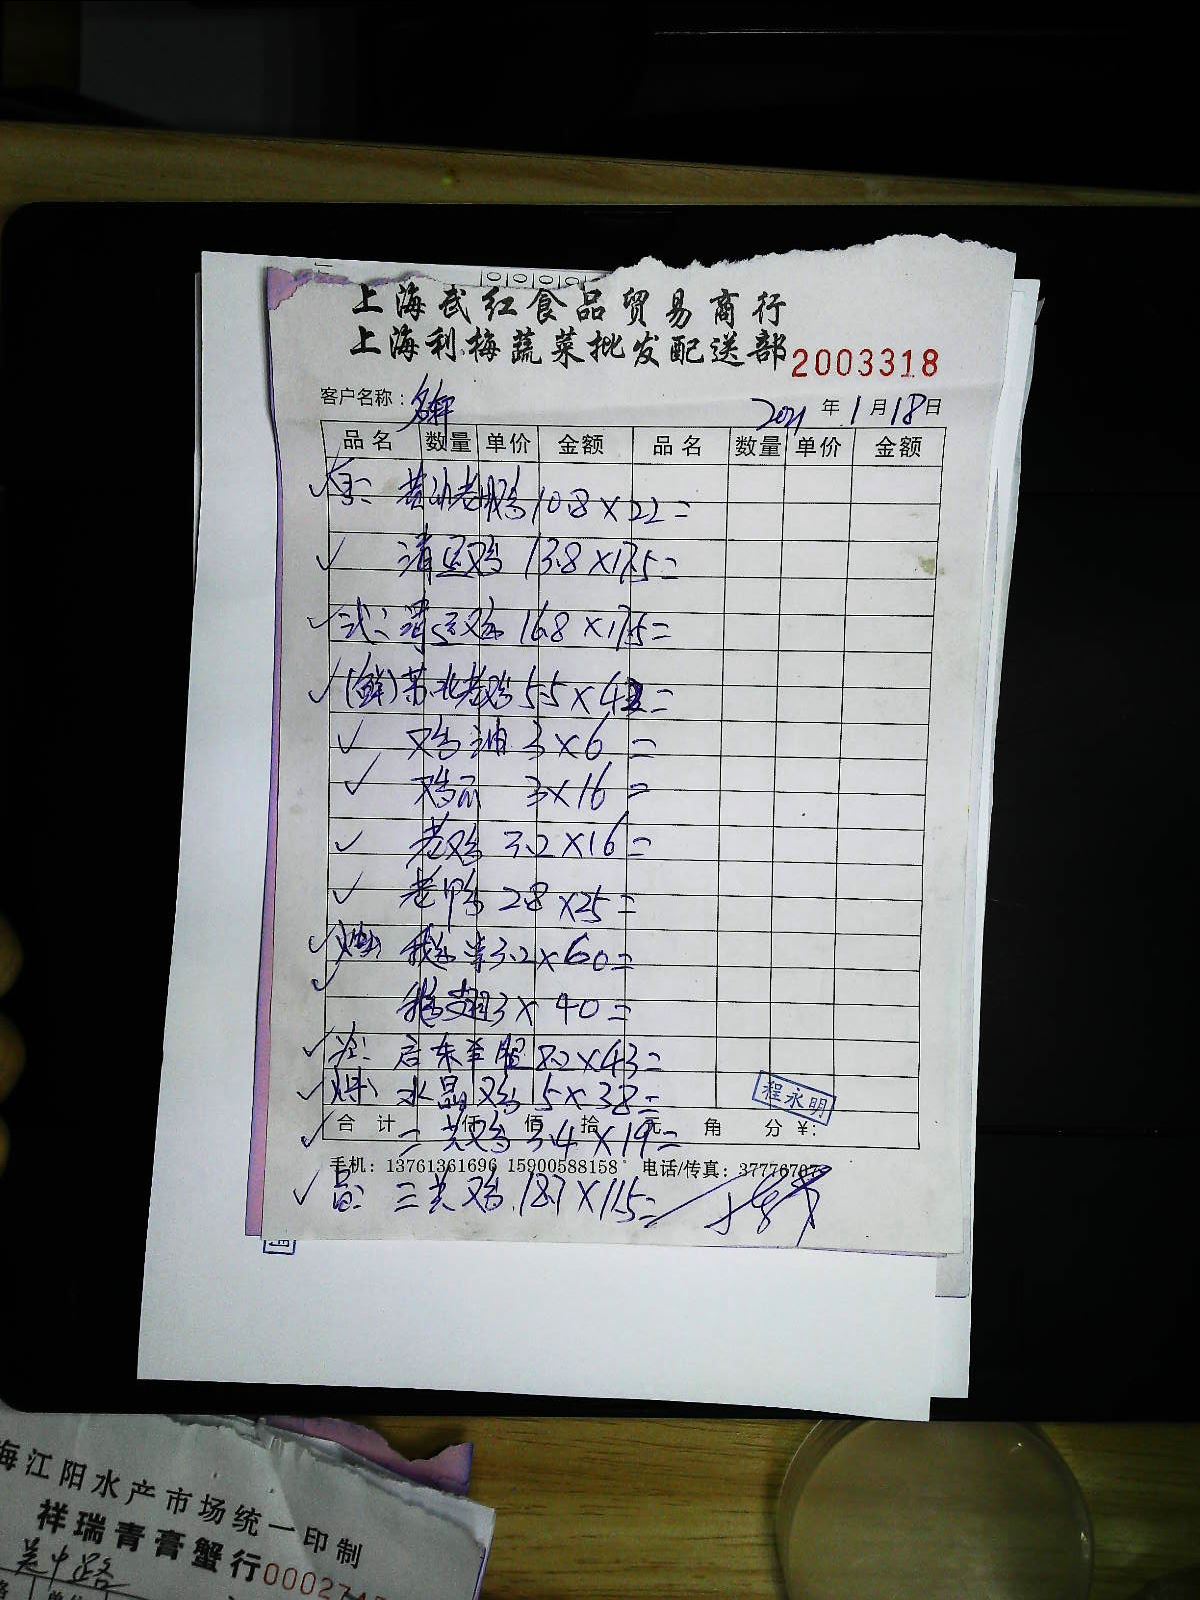 上海武红食品贸易商行
上海利梅蔬菜批发配送部 2003318
客户名称: 2021 年 1 月 18 日
品名 数量 单价 金额 品名 数量 单价 金额
老鸭 10.8×22=
清远鸡 13.8×17.5=
清远鸡 16.8×17.5=
(鲜) 老鸡 5.5×
鸡油 3×6=
3×16=
老鸡 3.2×16=
老鸭 2.8×25=
鹅掌 3.2×60=
鹅翅 3×40=
启东羊腿 8.2×43=
水晶鸡 15×38=
合计 仟 佰 拾 元 角 分 ¥:
程永明
三黄鸡 3.4×19=
手机: 13761361696 15900588158 电话/传真:
三黄鸡 18.7×11.5=
海江阳水产市场统一印制
祥瑞青膏蟹行
吴中路